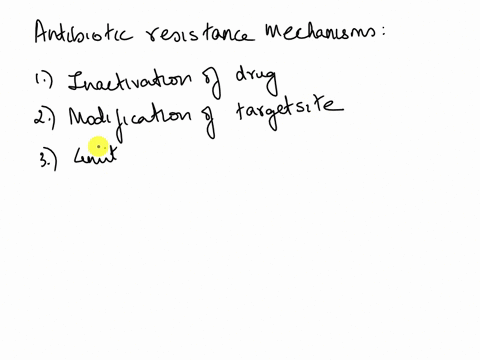 Antibiotic resistance Mechanisms:
1.) Inactivation of drug
2.) Modification of targetsite
3.) Limit